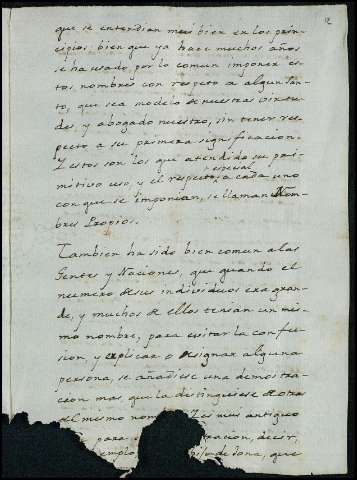 12
que se entendian mas bien en los prin-
cipios: bien que ya hace muchos años
se ha usado por lo comun imponer es-
tos nombres con respeto a algun San-
to, que sea modelo de nuestras virtu-
des, y abogado nuestro, sin tener res-
pecto a su primera significacion.
Y estos son los que atendido su pri-
mitivo uso, y el respeto especial a cada uno
con que se imponian, se llaman Nom-
bres Propios.
Tambien ha sido bien comun a las
Gentes y Naciones, que quando el
numero de sus individuos era gran-
de, y muchos de ellos tenian un mis-
mo nombre, para evitar la confu-
sion, y explicar o designar alguna
persona, se añadiese una demostra-
cion mas, que la distinguiese de otra
del mismo nom Les mui antiguo
para racion, decir,
emplo hijo de dona, que